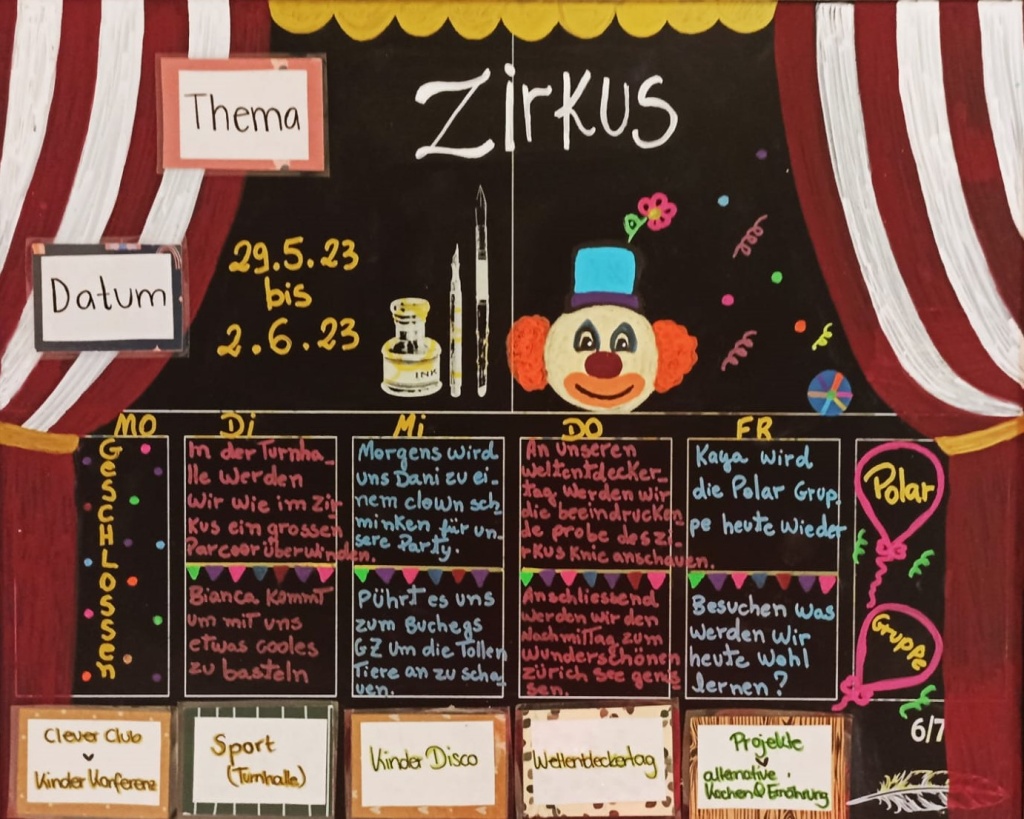 Thema
Zirkus
Datum
29.5.23
bis
2.6.23
INK
MO
Geschlossen
Di
In der Turnha_
lle werden
wir wie im Zir
kus ein grossen
Parcoor überwinden.
Bianca kommt
um mit uns
etwas cooles
zu basteln
Mi
Morgens wird
uns Dani zu ei_
nem clown sch_
minken für un_
sere Party.
Pührt es uns
zum Buchegs
GZ um die Tollen
Tiere an zu scha_
uen.
DO
An unseren
weltentdecker_
tag werden wir
die beeindrucken
de probe des zi_
rkus Knie anschauen.
Anschliessend
werden wir den
Nachmittag zum
wunderschönen
zürich see genis
sen.
FR
Kaya wird
die Polar Grup_
pe heute wieder
Besuchen was
werden wir
heute wohl
lernen?
Polar
Gruppe
Clever Club
Kinder Konferenz
Sport
(Turnhalle)
Kinder Disco
Weltentdeckertag
Projekte
alternative.
Kochen & Ernährung
6/7